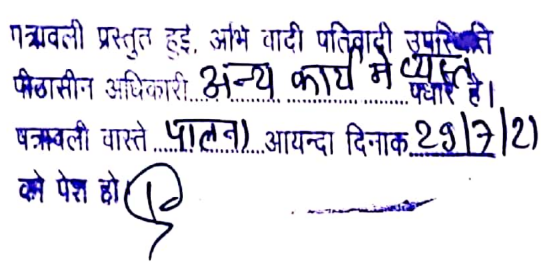 पत्रावली प्रस्तुत हुई, अभि वादी पतिवादी उपस्थिति
पीठासीन अधिकारी अन्य कार्य मे व्यस्त पधारे है।
पत्रावली वास्ते पालना आयन्दा दिनाक 29/7/21
को पेश हो